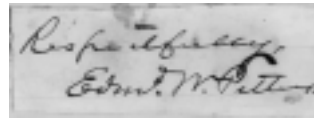 Respectfully,
Edmd. W. Pettus